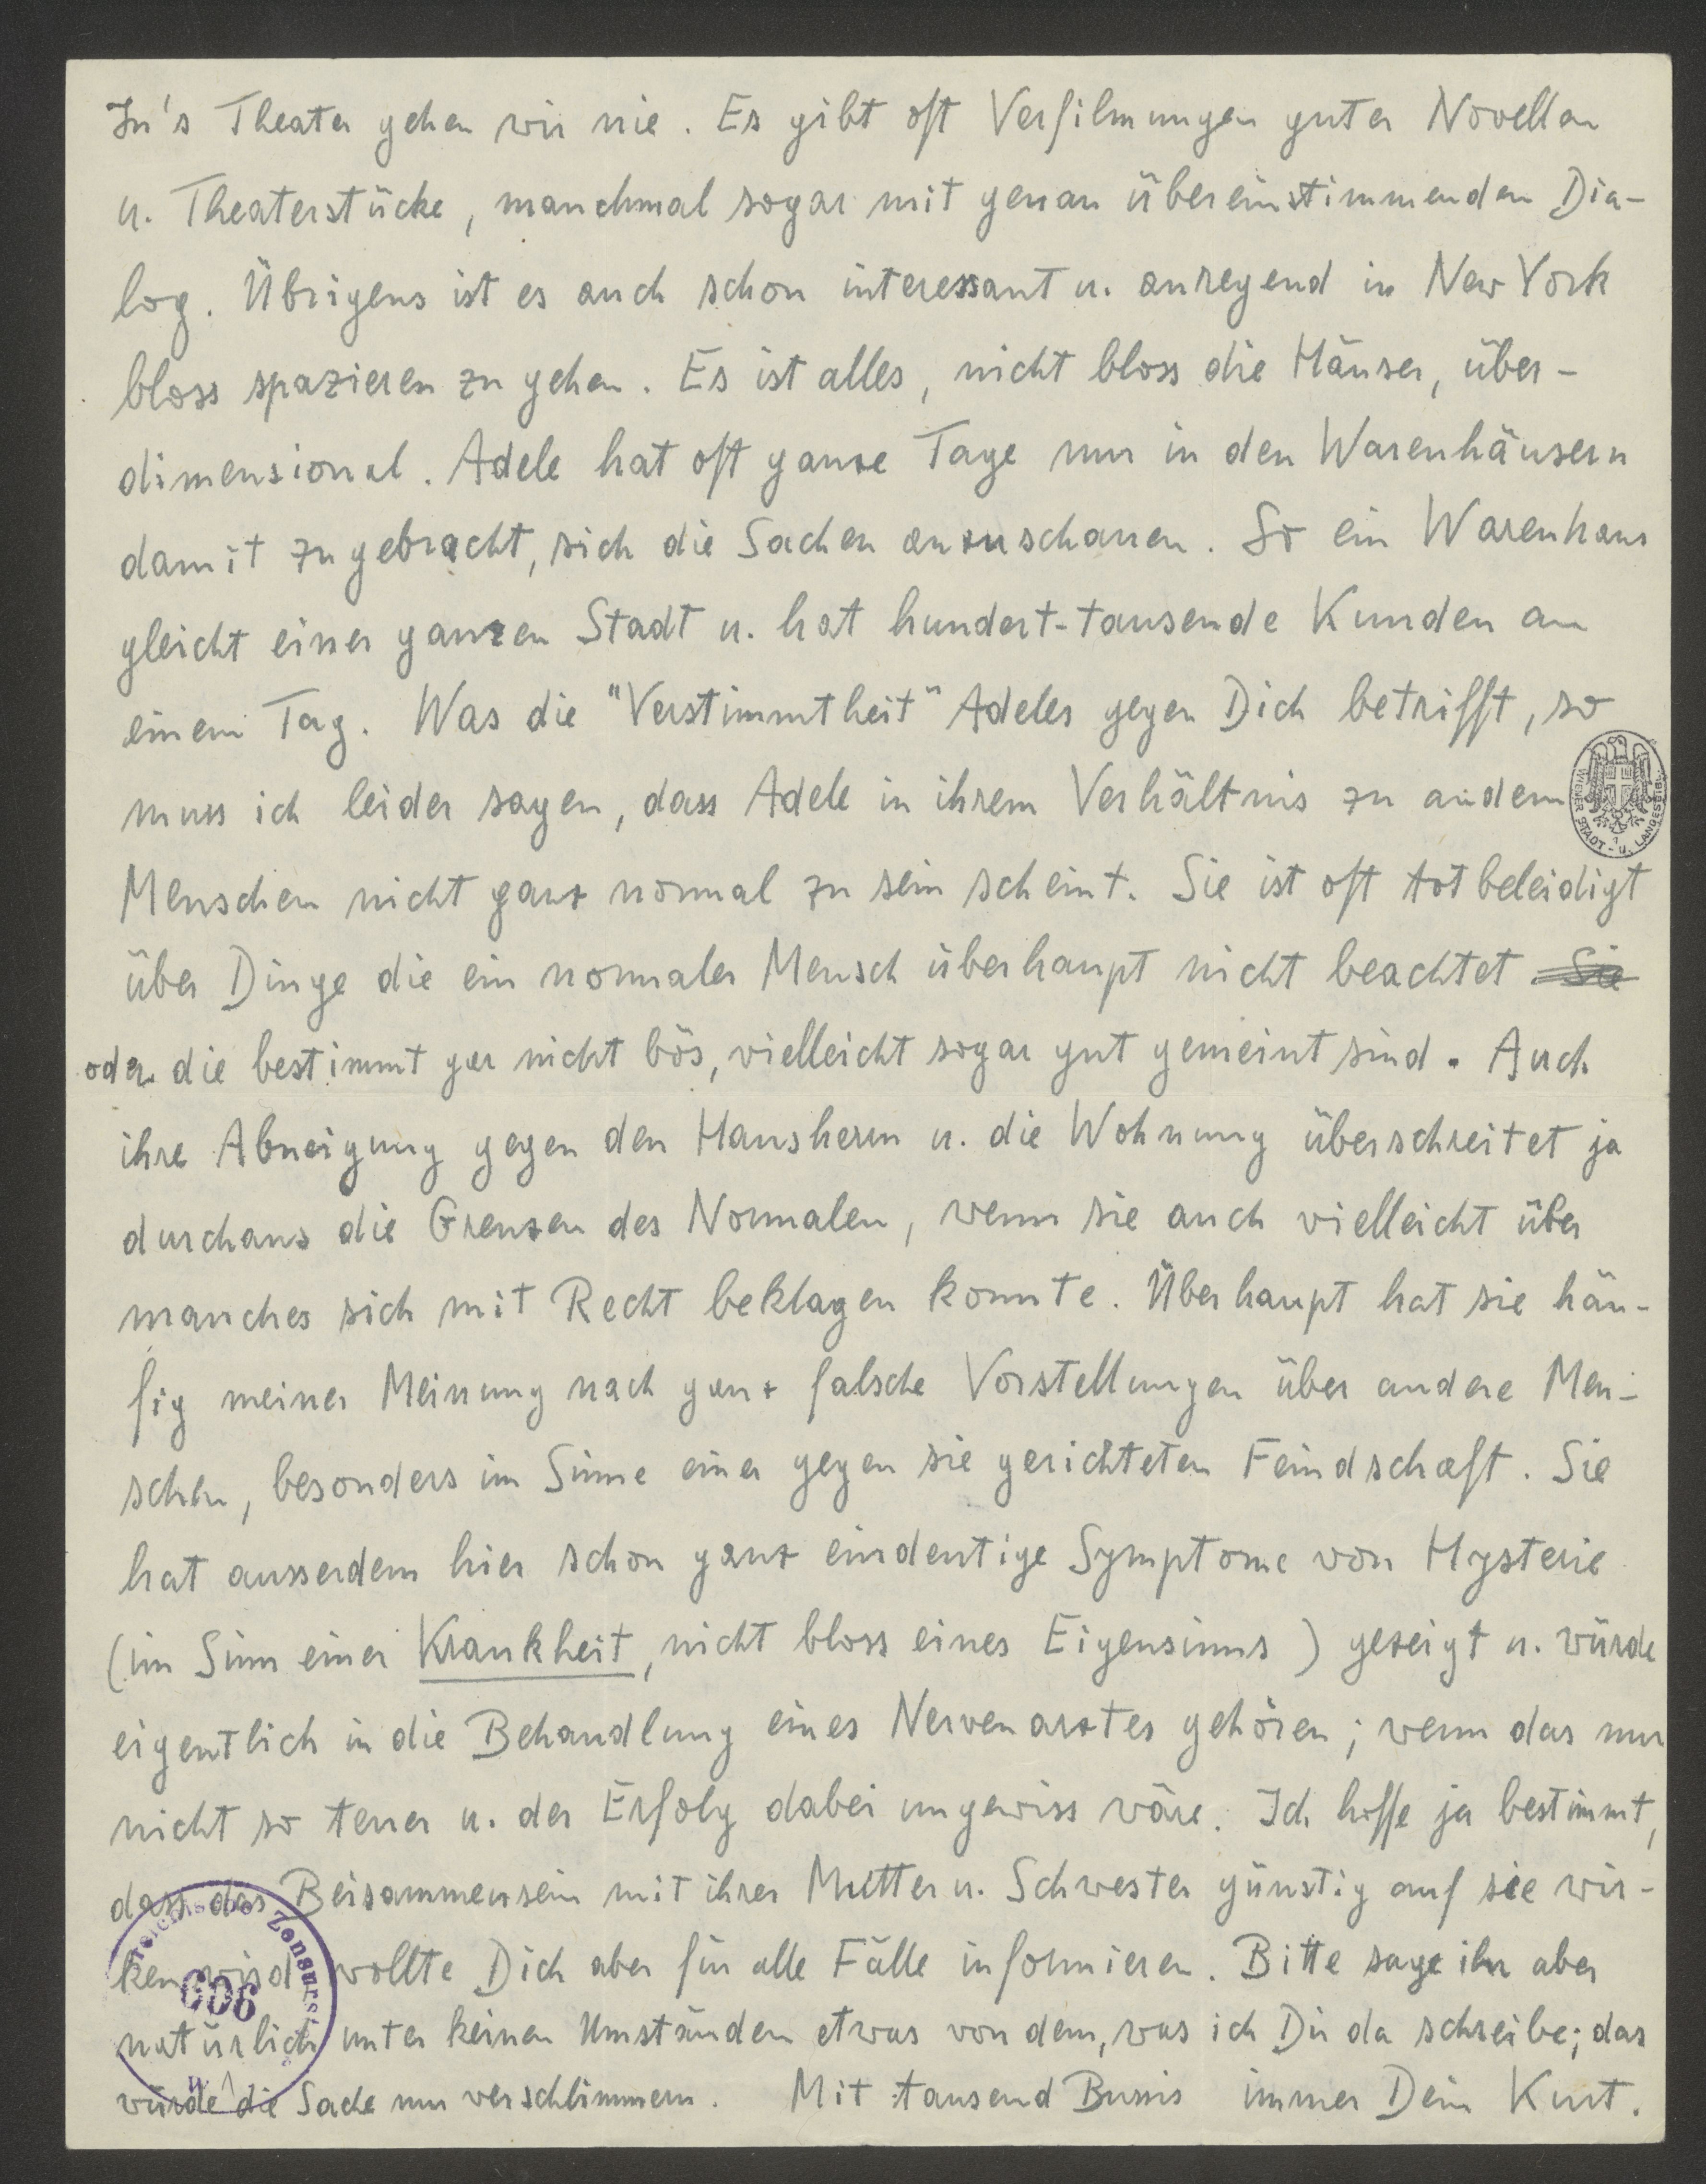 In's Theater gehen wir nie. Es gibt oft Verfilmungen guter Novellen
u. Theaterstücke, manchmal sogar mit genau übereinstimmenden Dia-
log. Übrigens ist es auch schon interessant u. anregend in New York
bloss spazieren zu gehen. Es ist alles, nicht bloss die Häuser, über-
dimensional. Adele hat oft ganze Tage nur in den Warenhäusern
damit zugebracht, sich die Sachen anzuschauen. So ein Warenhaus
gleicht einer ganzen Stadt u. hat hundert-tausende Kunden an
einem Tag. Was die "Verstimmtheit" Adeles gegen Dich betrifft, so
muss ich leider sagen, dass Adele in ihrem Verhältnis zu andern
WIENER STADT- u. LANDESBIBL.
Menschen nicht ganz normal zu sein scheint. Sie ist oft totbeleidigt
über Dinge die ein normaler Mensch überhaupt nicht beachtet Sie
oder die bestimmt gar nicht bös, vielleicht sogar gut gemeint sind. Auch
ihre Abneigung gegen den Hausherrn u. die Wohnung überschreitet ja
durchaus die Grenzen des Normalen, wenn sie auch vielleicht über
manches sich mit Recht beklagen konnte. Überhaupt hat sie häu-
fig meiner Meinung nach ganz falsche Vorstellungen über andere Men-
schen, besonders im Sinne einer gegen sie gerichteten Feindschaft. Sie
hat ausserdem hier schon ganz eindeutige Symptome von Hysterie
(im Sinn einer Krankheit, nicht bloss eines Eigensinns) gezeigt u. würde
eigentlich in die Behandlung eines Nervenarztes gehören; wenn das nur
nicht so teuer u. der Erfolg dabei ungewiss wäre. Ich hoffe ja bestimmt,
dass das Beisammensein mit ihrer Mutter u. Schwester günstig auf sie wir-
ken wird wollte Dich aber für alle Fälle informieren. Bitte sage ihr aber
Zensurst
606
natürlich unter keinen Umständen etwas von dem, was ich Dir da schreibe; das
würde die Sache nur verschlimmern. Mit tausend Bussis immer Dein Kurt.